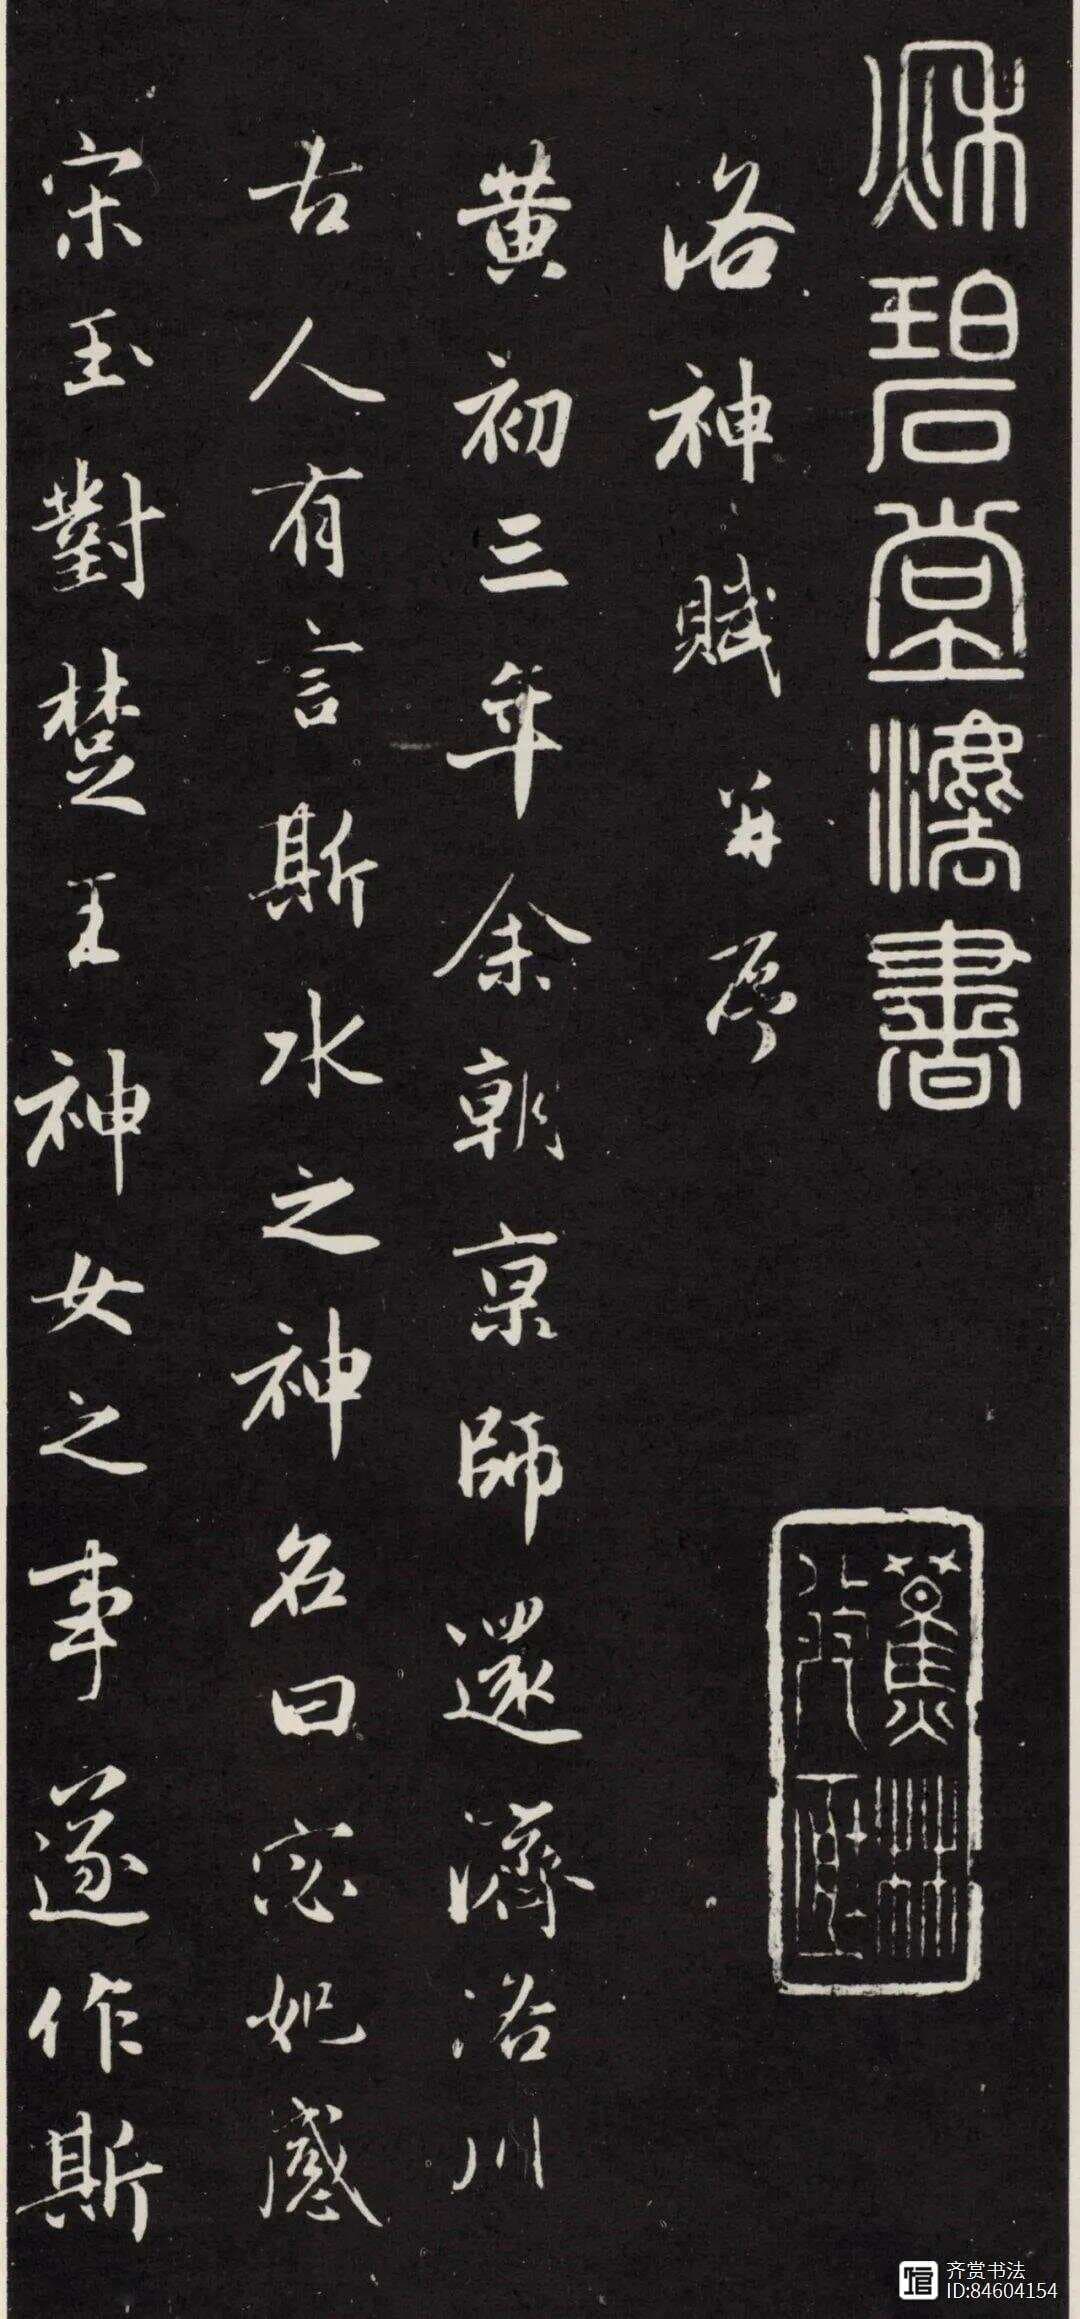 秋碧堂灋書
蕉林
洛神賦并序
黄初三年余朝京師還濟洛川
古人有言斯水之神名曰宓妃感
宋玉對楚王神女之事遂作斯
齐赏书法
ID:84604154